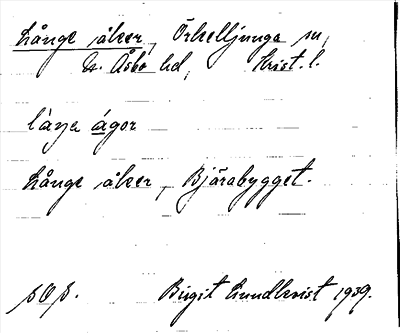 Långe åker, Örkelljunga sn,
N. Åsbo hd, Krist. l.
låŋa ágor
Långe åker, Bjärabygget.
sOs. Birgit Lundkvist 1939.